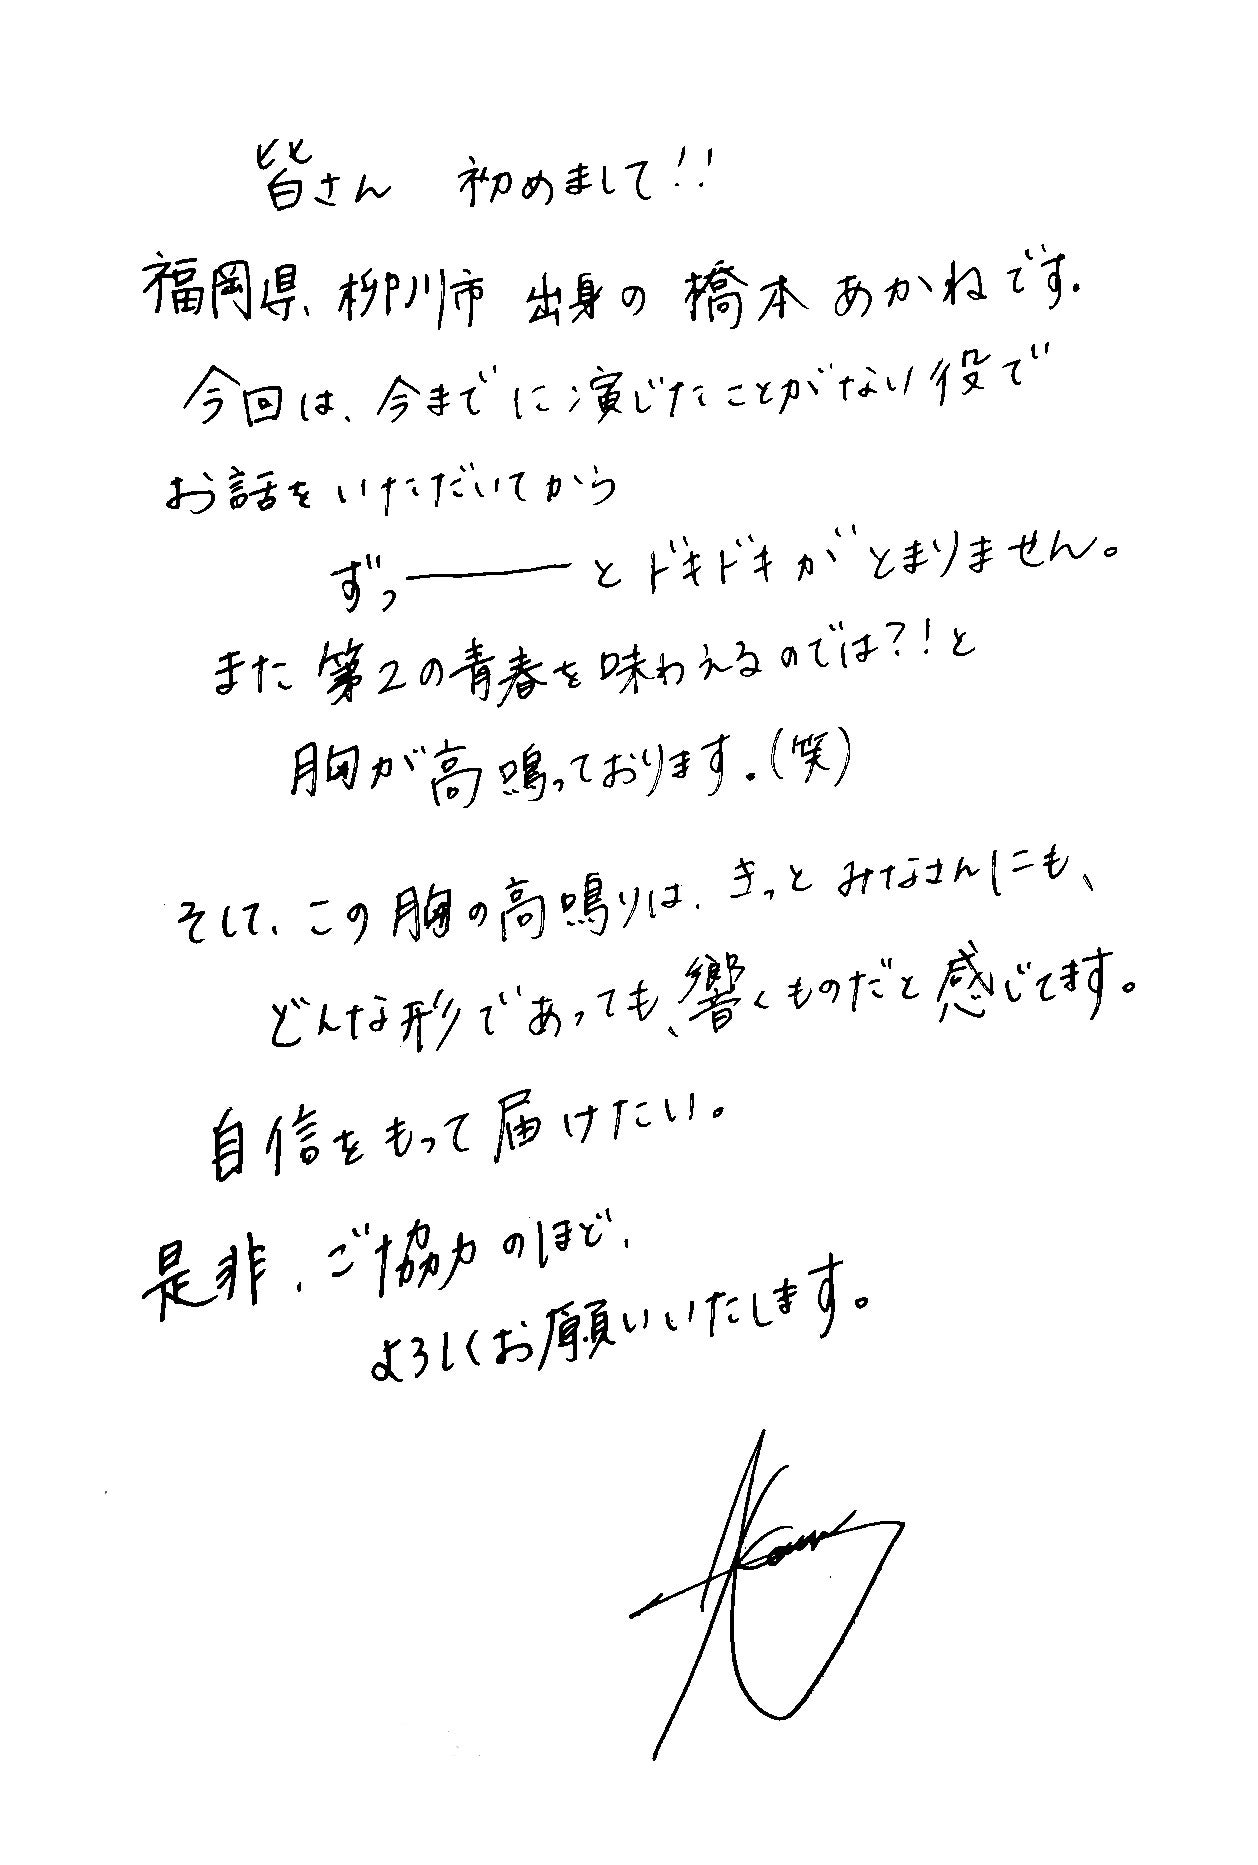 皆さん 初めまして!!
福岡県、柳川市 出身の 橋本 あかねです.
今回は、今までに演じたことがない役で
お話をいただいてから
ずっ―――とドキドキがとまりません。
また第2の青春を味わえるのでは?!と
胸が高鳴っております.(笑)
そして、この胸の高鳴りは、きっとみなさんにも、
どんな形であっても、響くものだと感じてます。
自信をもって届けたい。
是非、ご協力のほど、
よろしくお願いいたします。